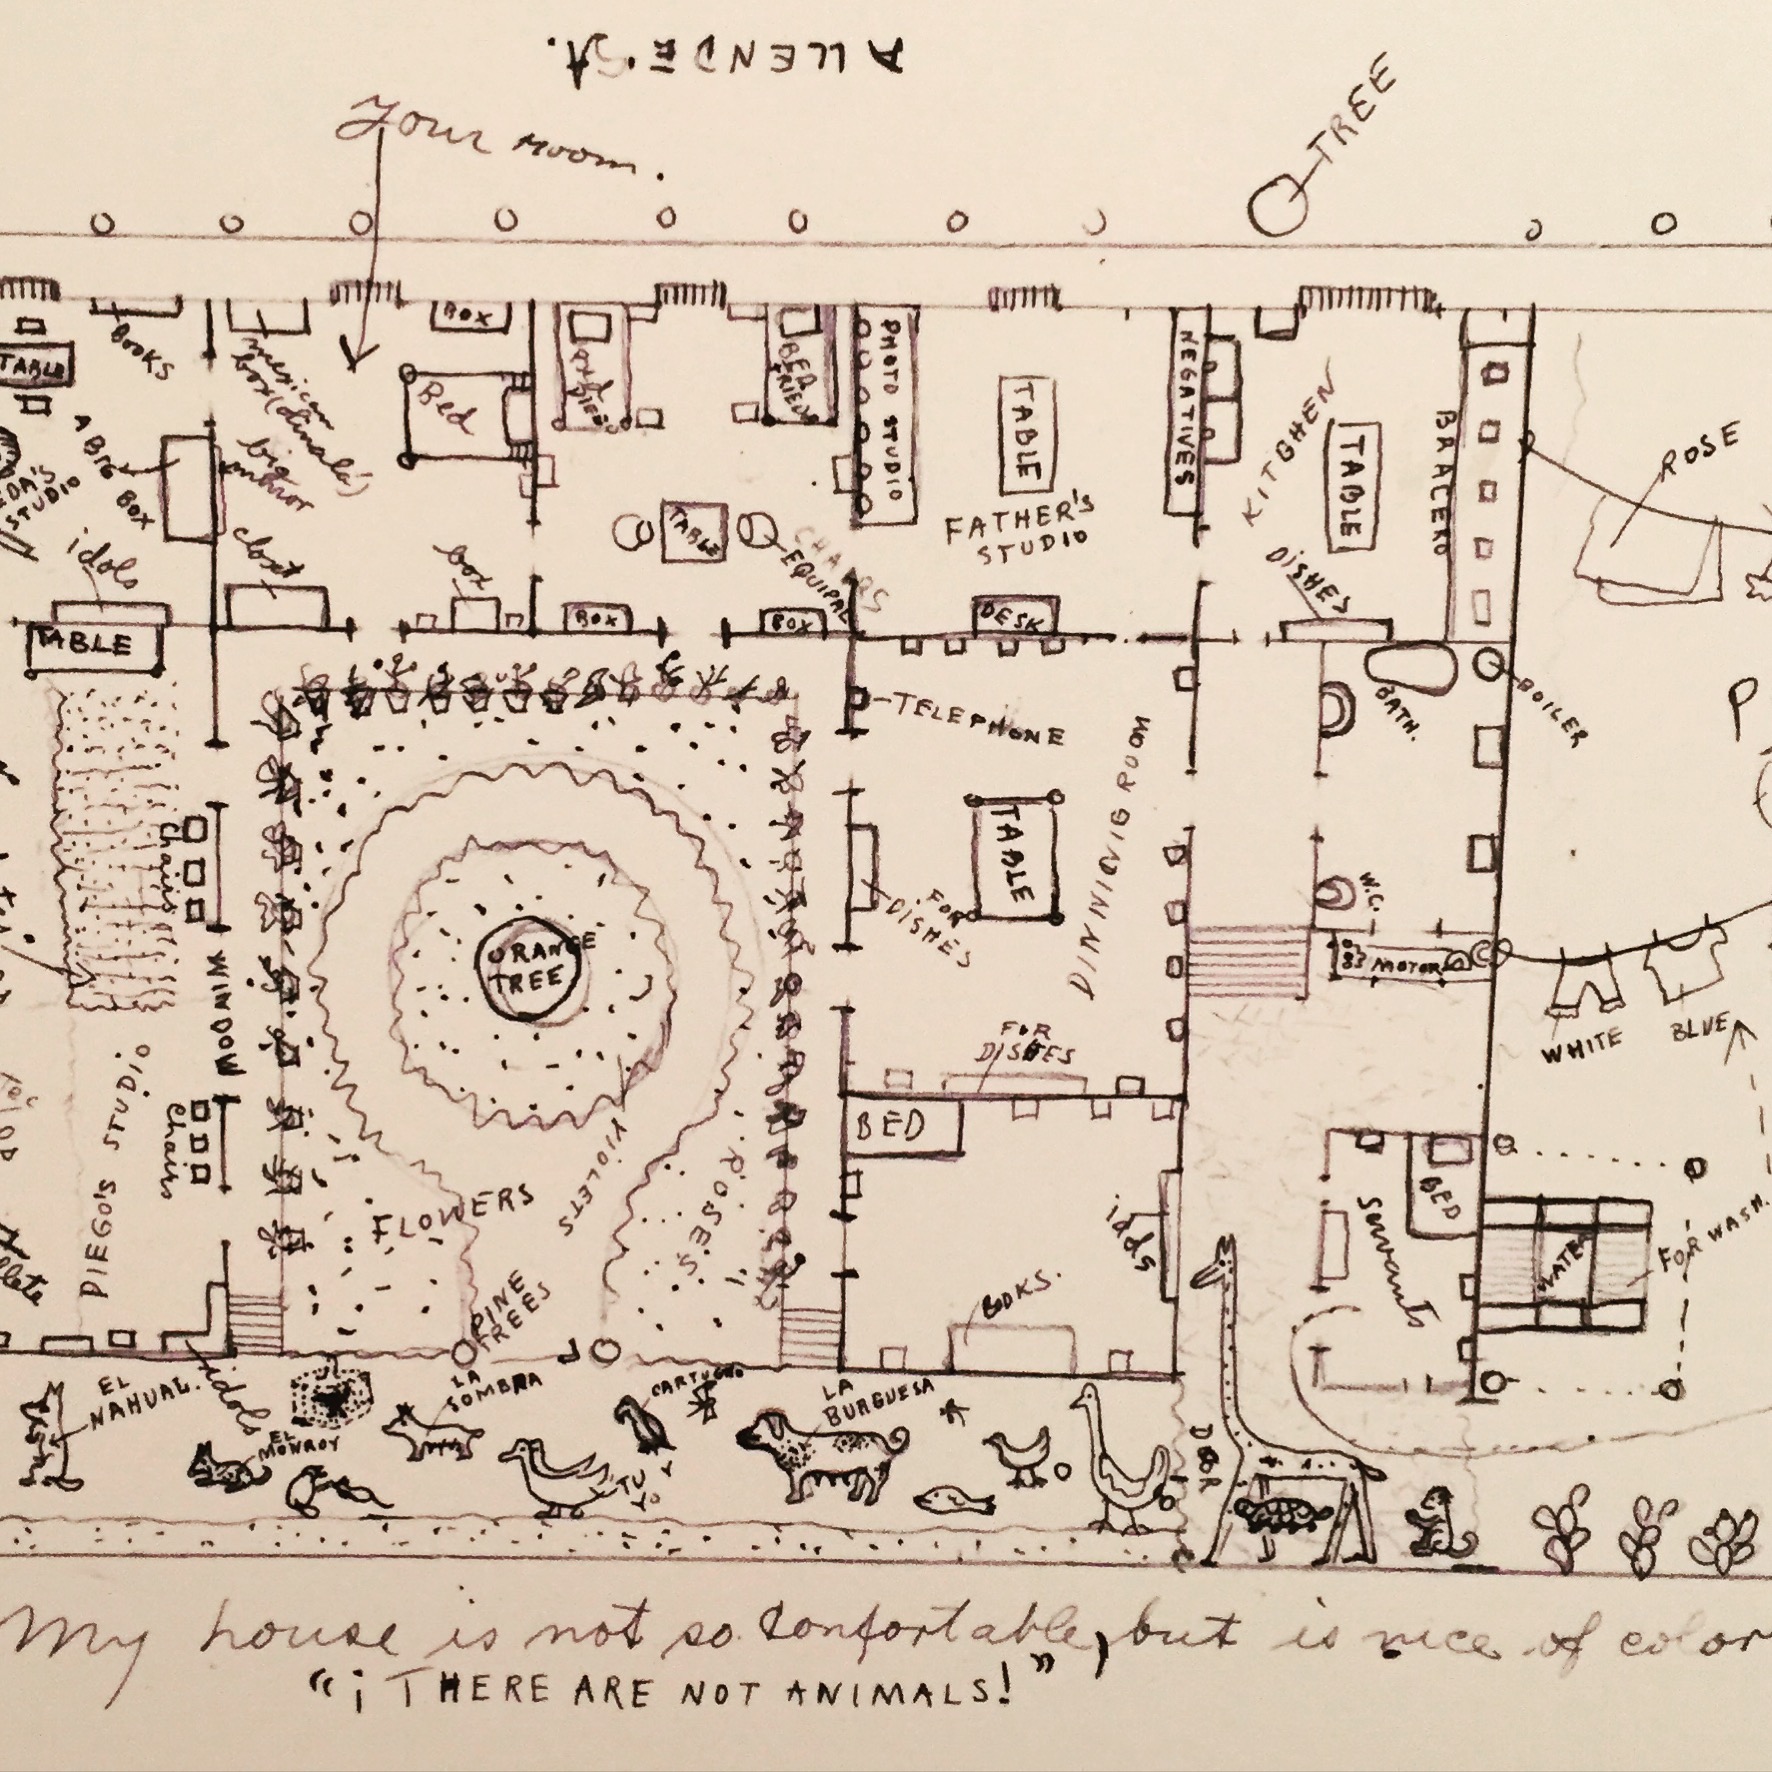 ALLENDE ST.
Your room.
TREE
BOOKS
mexican
box (dinalá's)
BOX
Bed
BED
DIEGO
BED
FRIEND
PHOTO STUDIO
TABLE
NEGATIVES
KITCHEN
TABLE
BRACERO
ROSE
TABLE
A BIG
BOX
big
mirror
STUDIO
idols
closet
box
TABLE
EQUIPAL
CHAIRS
FATHER'S
STUDIO
DISHES
TABLE
BOX
BOX
DESK
BATH.
BOILER
P
TELEPHONE
DINNIG ROOM
chairs
ORANGE
TREE
TABLE
FOR
DISHES
W.C.
MOTOR
WINDOW
WHITE
BLUE
FOR
DISHES
DIEGO'S STUDIO
chairs
VIOLETS
ROSES
FLOWERS
BED
idols
BED
Servants
WATER
FOR WASH.
PINE
TREES
BOKS.
EL
NAHUAL.
idols
EL
MONROY
LA
SOMBRA
CARTUCHO
TU Y
YO
LA
BURGUESA
DOOR
My house is not so confortable, but is nice of color
"¡THERE ARE NOT ANIMALS!"